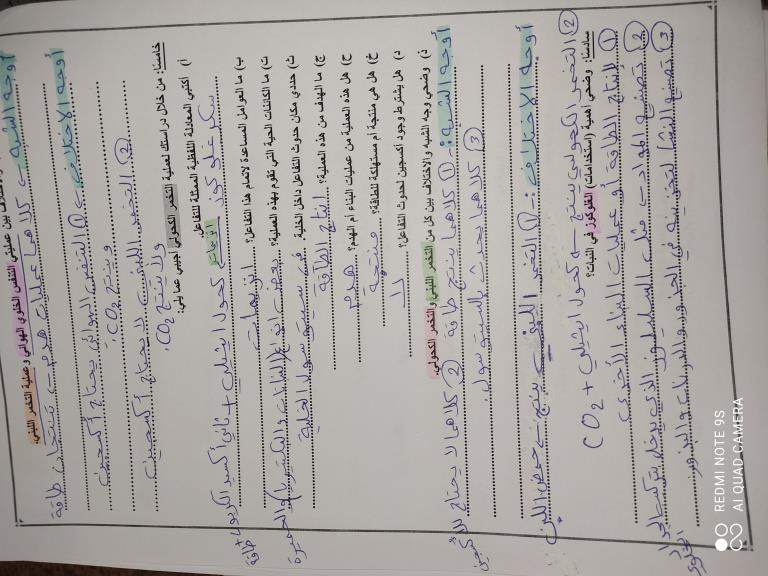 بين عمليتي التنفس الخلوي الهوائي وعملية التخمر اللبني.
أوجه الشبه → كلاهما عمليات هدم → تنتجان طاقة
أوجه الاختلاف → ① التنفس الهوائي يحتاج أكسجين
وينتج CO2.
② التخمر اللبني لا يحتاج أكسجين
ولا ينتج CO2.
خامسًا: من خلال دراستك لعملية التخمر الكحولي أجيبي عما يلي:
أ) أكتبي المعادلة اللفظية الممثلة للتفاعل.
سكر غلوكوز إنزيمات كحول ايثيلي + ثاني أكسيد الكربون + طاقة
ب) ما العوامل المساعدة لاتمام هذا التفاعل؟ انزيمات
ت) ما الكائنات الحية التي تقوم بهذه العملية؟ بعض انواع النباتات والبكتيريا والخميرة
ث) حددي مكان حدوث التفاعل داخل الخلية. في سيتوسول الخلية
ج) ما الهدف من هذه العملية؟ إنتاج الطاقة
ح) هل هذه العملية من عمليات البناء أم الهدم؟ هدم
خ) هل هي منتجة أم مستهلكة للطاقة؟ منتجة
د) هل يشترط وجود أكسجين لحدوث التفاعل؟ لا
ذ) وضحي وجه الشبه والاختلاف بين كل من التخمر اللبني والتخمر الكحولي.
أوجه الشبه :- ① كلاهما ينتج طاقة ② كلاهما لا يحتاج للأكسجين
③ كلاهما يحدث بالسيتوسول.
أوجه الاختلاف :- ① التخمر اللبني ينتج → حمض اللبن
② التخمر الكحولي ينتج → كحول ايثيلي + CO2
سادسًا: وضحي أهمية (استخدامات) الغلوكوز في النبات؟
① إنتاج الطاقة أو عمليات البناء الأخرى
② تصنيع المواد مثل السليلوز الذي يدخل بتركيب الجدار الخلوي
③ تصنيع النشا لتخزينه في الجذور والدرنات والبذور.
REDMI NOTE 9S
AI QUAD CAMERA